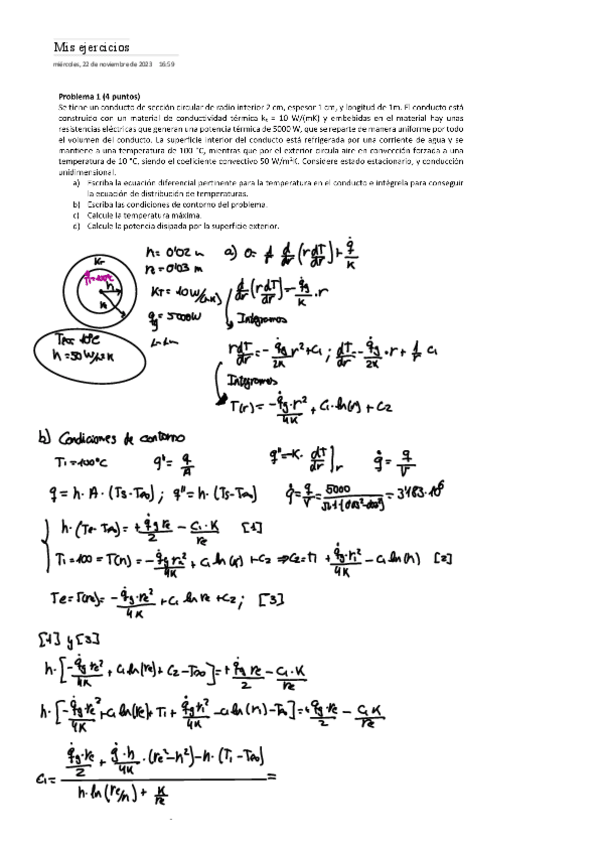 Mis ejercicios
miércoles, 22 de noviembre de 2023 16:59
Problema 1 (4 puntos)
Se tiene un conducto de sección circular de radio interior 2 cm, espesor 1 cm, y longitud de 1m. El conducto está
construido con un material de conductividad térmica k = 10 W/(mK) y embebidas en el material hay unas
resistencias eléctricas que generan una potencia térmica de 5000 W, que se reparte de manera uniforme por todo
el volumen del conducto. La superficie interior del conducto está refrigerada por una corriente de agua y se
mantiene a una temperatura de 100 °C, mientras que por el exterior circula aire en convección forzada a una
temperatura de 10 °C, siendo el coeficiente convectivo 50 W/m²K. Considere estado estacionario, y conducción
unidimensional.
a) Escriba la ecuación diferencial pertinente para la temperatura en el conducto e intégrela para conseguir
la ecuación de distribución de temperaturas.
b) Escriba las condiciones de contorno del problema.
c) Calcule la temperatura máxima.
Calcule la potencia disipada por la superficie exterior.
ri = 0'02 m
re = 0'03 m
KT = 10 W/(m·K)
q̇g = 5000W
L = 1m
KT
Ti = 100°C
ri
re
T∞ = 10°C
h = 50 W/m²K
a) 0 = 1/r d/dr (r dT/dr) + q̇/K
d/dr (r dT/dr) = - q̇g/K · r
Integramos
r dT/dr = - q̇g/2K r² + C1 ; dT/dr = - q̇g/2K · r + 1/r C1
Integramos
T(r) = - q̇g·r²/4K + C1·ln(r) + C2
b) Condiciones de contorno
Ti = 100°C q'' = q/A q'' = -K· dT/dr |r q̇ = q/V
q = h·A·(Ts-T∞) ; q'' = h·(Ts-T∞) q̇ = q/V = 5000/π·1·(0'03²-0'02²) = 3'183·10⁶
h·(Te-T∞) = + q̇g re/2 - C1·K/re [1]
Ti = 100 = T(ri) = - q̇g ri²/4K + C1 ln(ri) + C2 ⇒ C2 = Ti + q̇g·ri²/4K - C1 ln(ri) [2]
Te = T(re) = - q̇g·re²/4K + C1 ln re + C2; [3]
[1] y [3]
h·[- q̇g re²/4K + C1 ln(re) + C2 - T∞] = + q̇g re/2 - C1·K/re
h·[- q̇g·re²/4K + C1 ln(re) + Ti + q̇g ri²/4K - C1 ln(ri) - T∞] = + q̇g re/2 - C1 K/re
C1 = q̇g·re/2 + q̇·h/4K · (re²-ri²) - h·(Ti-T∞) / h·ln(re/ri) + K/re =